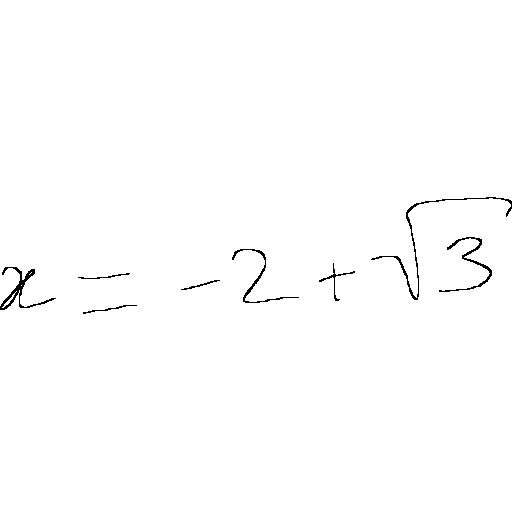 x = -2 + √3